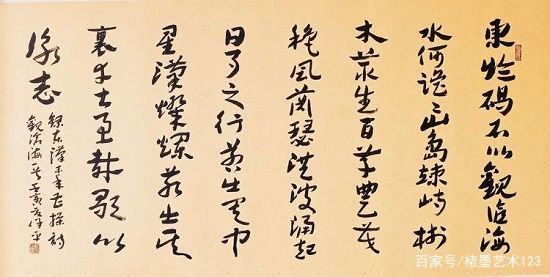 東臨碣石以觀滄海
水何澹々山島竦峙樹
木叢生百草豐茂
穐風蕭瑟洪波涌起
日月之行若出其中
星漢燦爛若出其
裏幸甚至哉歌以
詠志
錄東漢末年曹操詩
觀滄海一首壬寅
百家号/楮墨艺术123